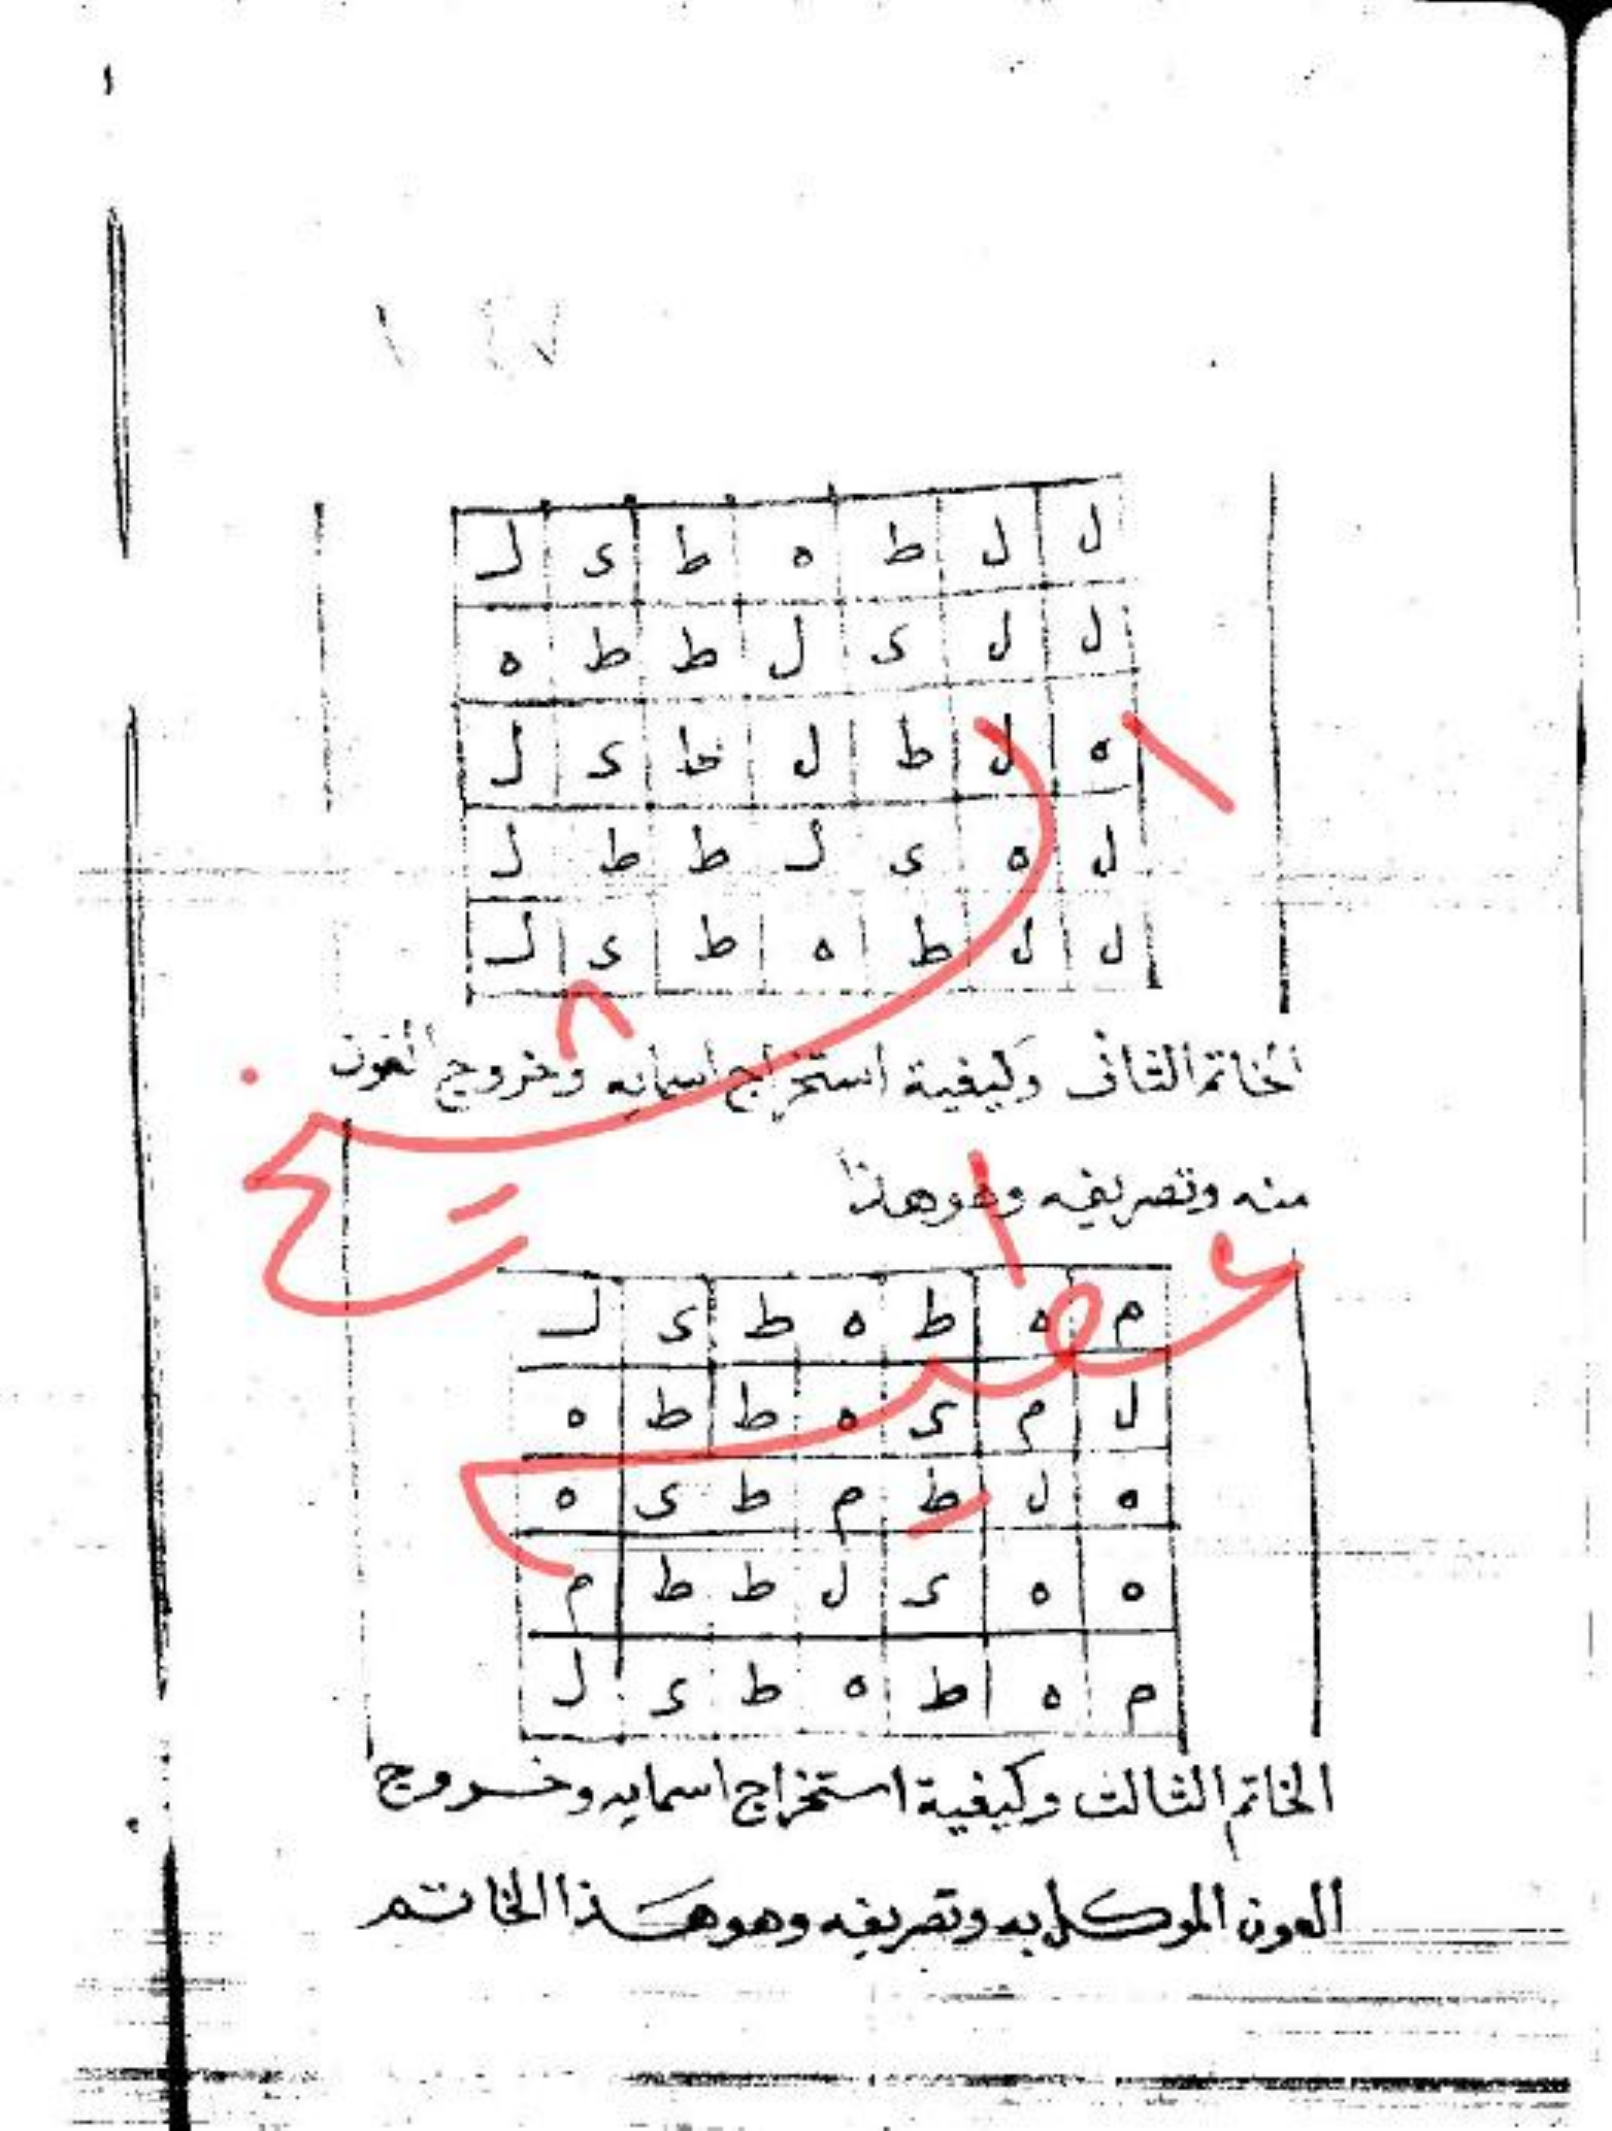 ل ل ط ه ط ى ل
ل ل ى ل ط ط ه
ه ل ط ل ط ى ل
ل ه ى ل ط ط ل
ل ل ط ه ط ى ل
الخاتم الثانى وكيفية استخراج اسمايه وخروج العون
منه وتصريفه وهو هذا
م ه ط ه ط ى ل
ل م ى ه ط ط ه
ه ل ط م ط ى ه
ه ه ى ل ط ط م
م ه ط ه ط ى ل
الخاتم الثالث وكيفية استخراج اسمايه وخروج
العون الموكل به وتصريفه وهو هذا الخاتم